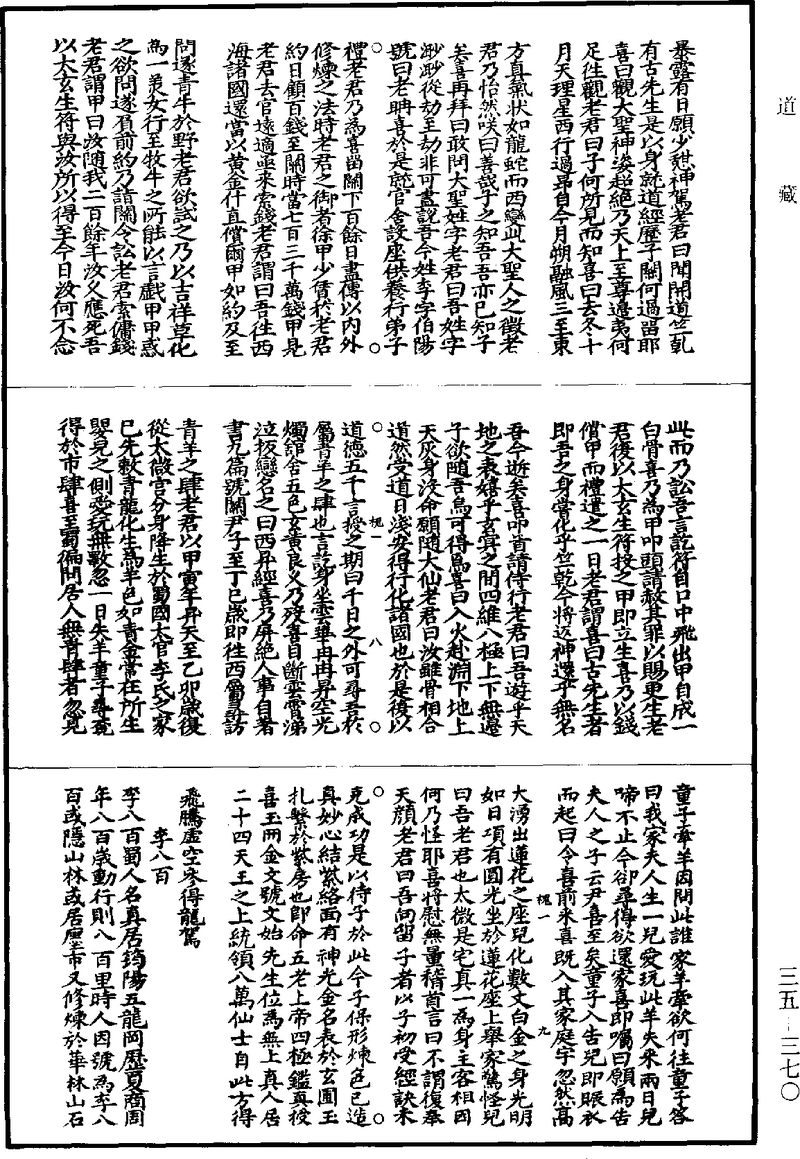 道藏
三五—三七〇
暴露有日願少憩神駕老君曰聞開道竺乾
有古先生是以身就道經歷子關何過留耶
喜曰觀大聖神姿超絕乃天上至尊邊夷何
足往觀老君曰子何所見而知喜曰去冬十
月天理星西行過昴自今月朔融風三至東
方真氣狀如龍蛇而西變此大聖人之徵老
君乃怡然咲曰善哉子之知吾吾亦已知子
矣喜再拜曰敢問大聖姓字老君曰吾姓字
渺渺從劫至劫非可盡說吾今姓李字伯陽
號曰老聃喜於是就官舍設座供養行弟子
禮老君乃為喜留關下百餘日盡傳以內外
修煉之法時老君之御者徐甲少賃於老君
約日顧百錢至關時當七百三千萬錢甲見
老君去官遠適亟來索錢老君謂曰吾往西
海諸國還當以黃金什直償爾甲如約及至
關遂青牛於野老君欲試之乃以吉祥草化
為一美女行至牧牛之所能以言戲甲甲惑
之欲問遂負前約乃詣關令訟老君索傭錢
老君謂甲曰汝隨我二百餘年汝久應死吾
以太玄生符與汝所以得至今日汝何不念
此而乃訟吾言訖符自口中飛出甲自成一
白骨喜乃為甲叩頭請赦其罪以賜更生老
君復以太玄生符投之甲即立生喜乃以錢
償甲而禮遣之一日老君謂喜曰古先生者
即吾之身嘗化乎竺乾今將返神還乎無名
吾今逝矣喜叩首請侍行老君曰吾遊乎天
地之表嬉乎玄冥之間四維八極上下無邊
子欲隨吾烏可得焉喜曰入火赴淵下地上
天灰身沒命願隨大仙老君曰汝雖骨相合
道然受道日淺安得行化諸國也於是復以
道德五千言授之期曰千日之外可尋吾於
槐一
八
蜀青羊之肆也言訖身坐雲華冉冉昇空光
燭館舍五色玄黃良久乃歿喜目斷雲霄涕
泣扳戀名之曰西昇經喜乃屏絕人事自著
書九篇號關尹子至丁巳歲即往西蜀尋訪
青羊之肆老君以甲寅年昇天至乙卯歲復
從太微宮分身降生於蜀國太官李氏之家
已先敕青龍化生為羊色如青金常在所生
嬰兒之側愛玩無斁忽一日失羊童子尋覓
得於市肆喜至蜀徧問居人無青肆者忽見
童子牽羊因問此誰家羊牽欲何往童子答
曰我家夫人生一兒愛玩此羊失來兩日兒
啼不止今卻尋得欲還家喜即囑曰願為告
夫人之子云尹喜至矣童子入告兒即賬衣
而起曰令喜前來喜既入其家庭宇忽然高
大湧出蓮花之座兒化數丈白金之身光明
槐一
九
如日項有圓光坐於蓮花座上舉家驚怪兒
曰吾老君也太微是宅真一為身主客相因
何乃怪耶喜將慰無量稽首言曰不謂復奉
天顏老君曰吾向留子者以子初受經訣未
克成功是以待子於此今子保形煉色已造
真妙心結紫絡面有神光金名表於玄圃玉
札繫於紫房也即命五老上帝四極鑑真授
喜玉冊金文號文始先生位為無上真人居
二十四天王之上統領八萬仙士自此方得
飛騰虛空參得龍駕
李八百
李八百蜀人名真居筠陽五龍岡歷夏商周
年八百歲動行則八百里時人因號為李八
百或隱山林或居廛市又修煉於華林山石